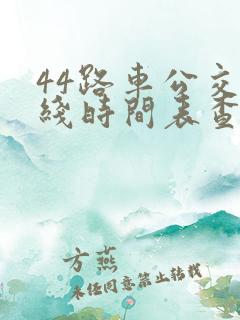 44路车公交
线时间表查
方燕
未经同意禁止转载